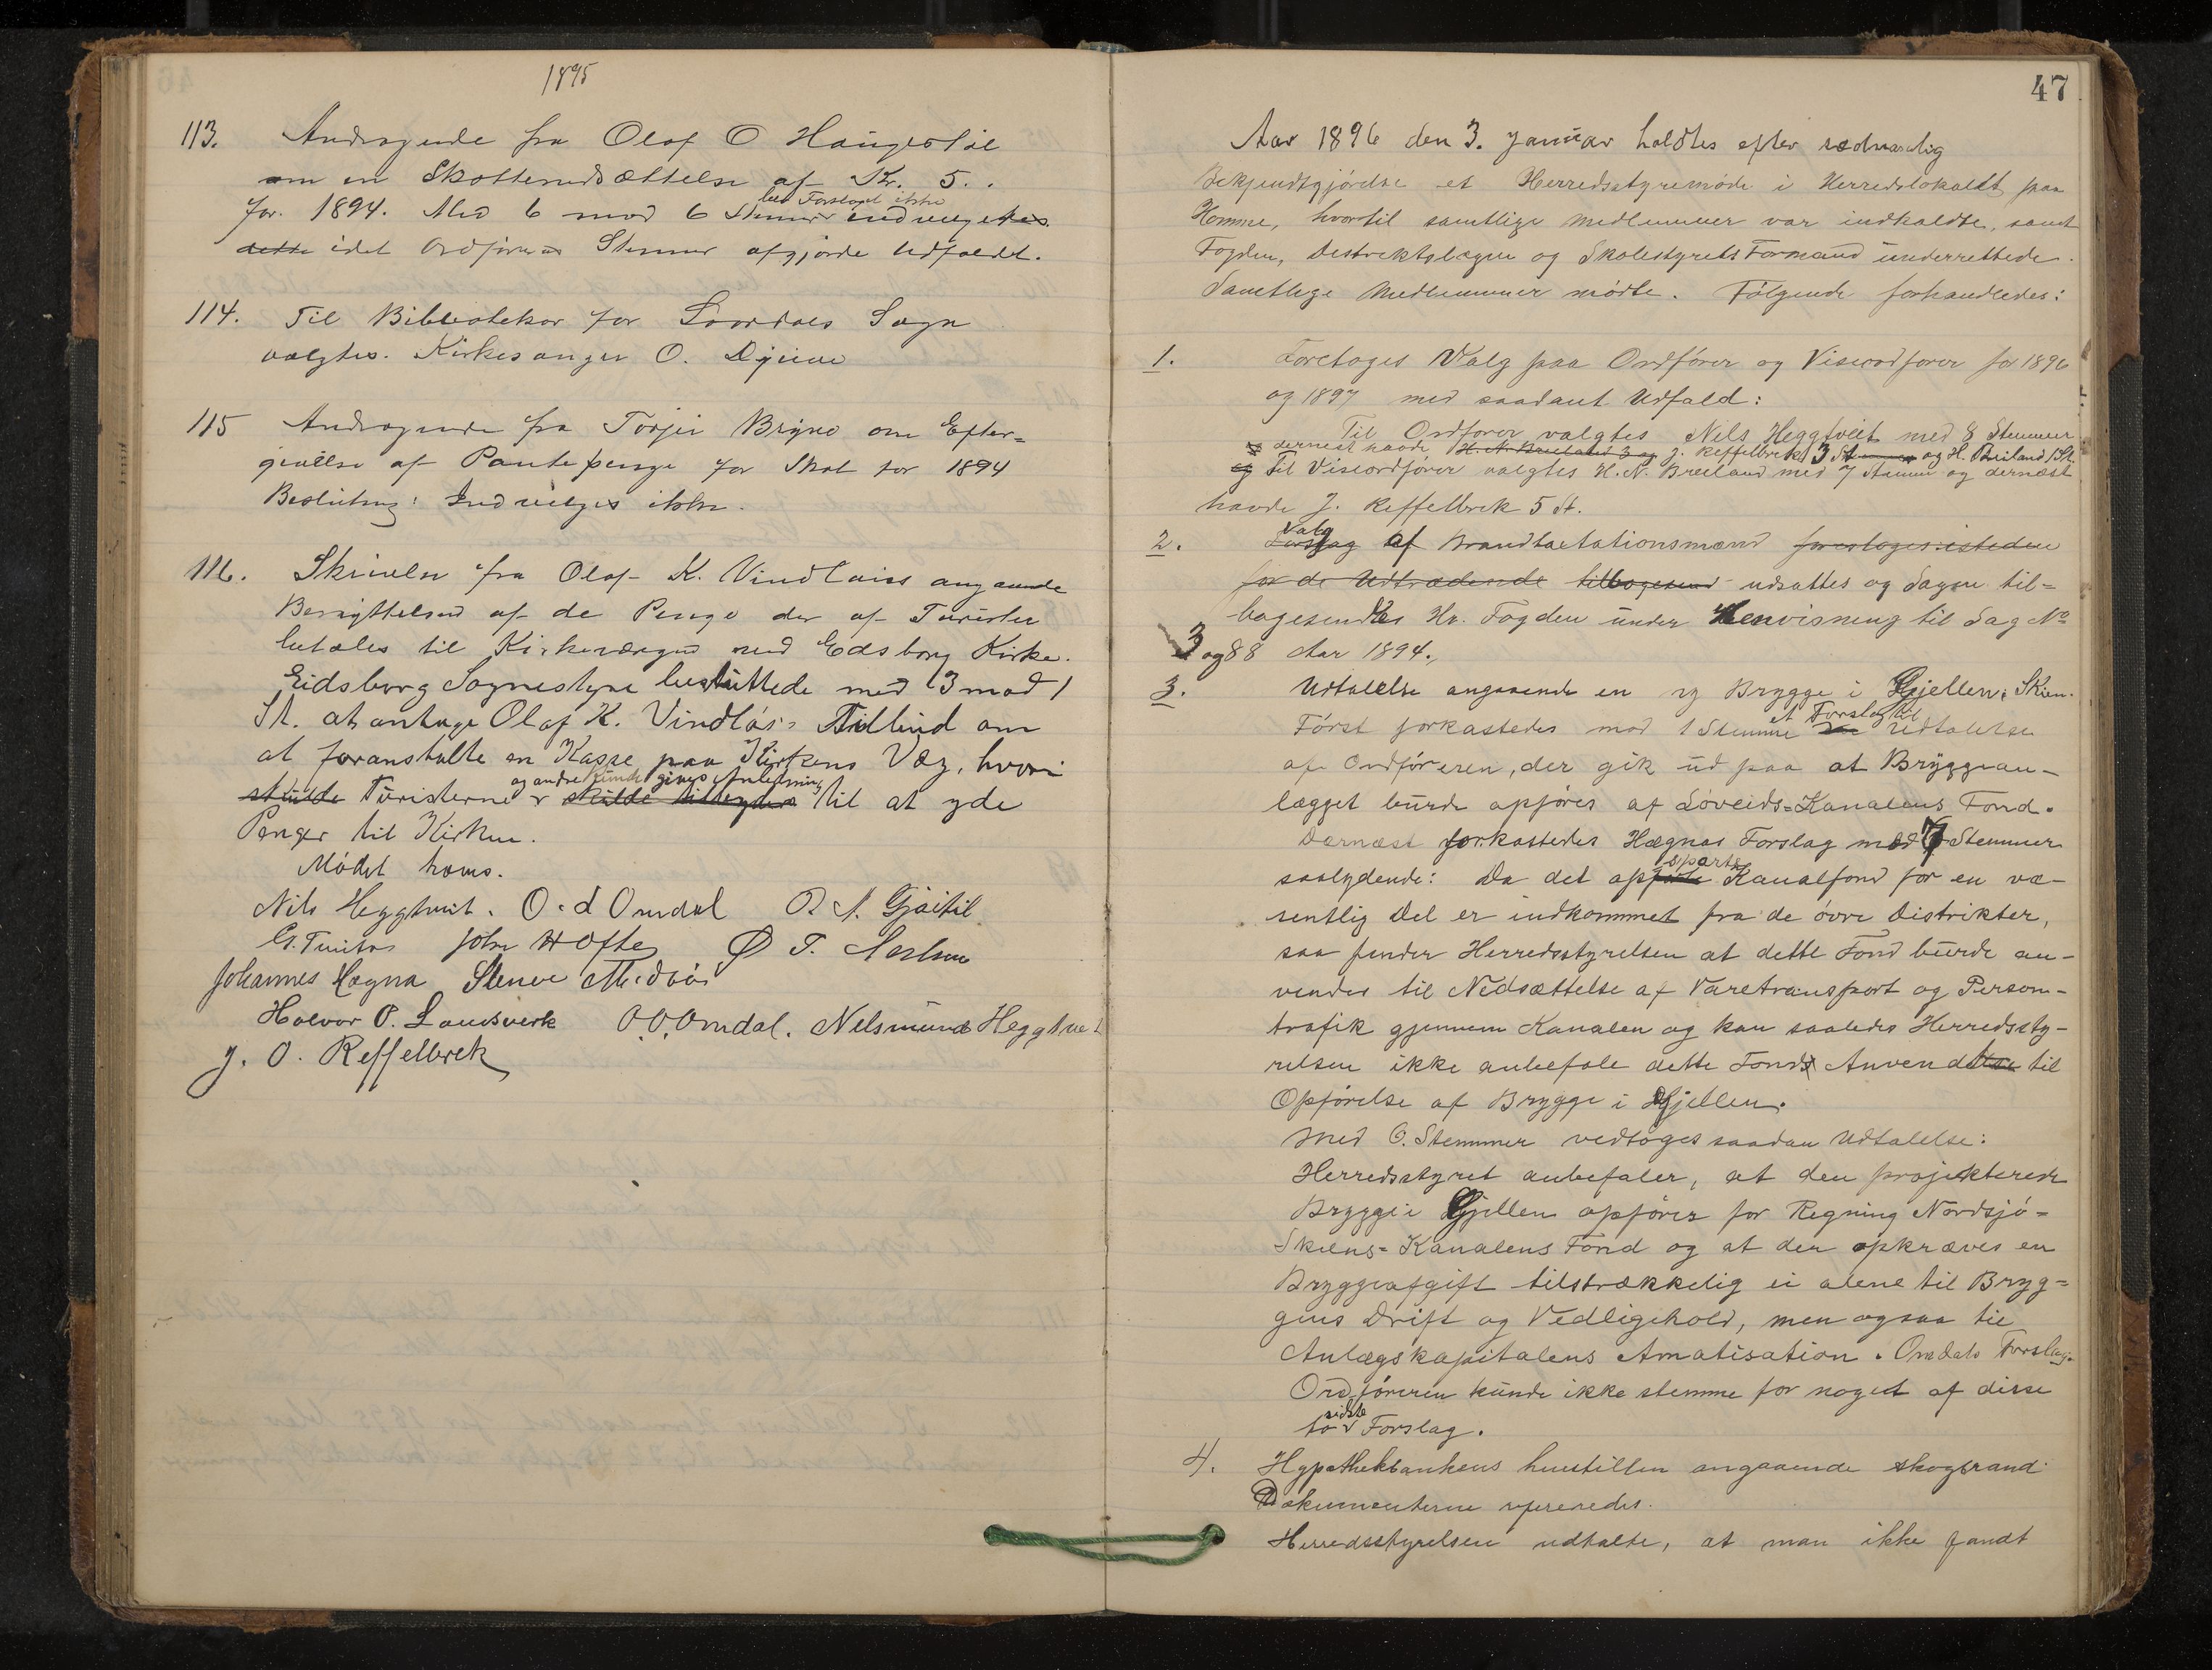 1895
113. Andragende fra Olaf O Haugestøl
om en Skattenedsættelse af Kr. 5..
blev Forslaget ikke
for 1894. Med 6 mod 6 Stemmer indvilgetes.
dette idet Ordførerens Stemme afgjørde Udfaldet.
114. Til Bibliotekar for Laardals Sogn
valgtes. Kirkesanger O. Djuve
115 Andragende fra Torjei Bryne om Efter=
givelse af Pantepenge for Skat for 1894
Beslutning: Indvilges ikke.
116. Skrivelse fra Olaf K. Vindlaus angaaende
Benyttelsen af de Penge der af Turister
betales til Kirkeværgen ved Edsborg Kirke.
Eidsborg Sognestyre besluttede med 3 mod 1
St. at antage Olaf K. Vindlás's Tilbud om
at foranstalte en Kasse paa Kirkens Væg, hvori
og andre kunde gives Anledning
skulde Turisterne skulde til at yde
Penger til Kirken.
Mødet hæves.
Nils Heggtveit. O. d Omdal P. N. Gjøitil
G. Tveitas John H Hofte Ø T. Neslun
Johannes Hægna Slenve Midbøi
Halvor O. Landsverk O. O. Omdal. Nelsmund Heggtveit
J. O. Reffelbrek
47
Aar 1896 den 3. januar holdtes efter sædvanlig
Bekjendtgjørelse et Herredsstyremøde i Herredslokalet paa
Homme, hvortil samtlige Medlemmer var indkaldte, samt
Fogden, Distriktslægen og Skolestyrets Formand underrettede.
Samtlige Medlemmer mødte. Følgende forhandledes:
1. Foretoges Valg paa Ordfører og Viseordfører for 1896
og 1897 med saadant Udfald:
Til Ordfører valgtes Nils Heggtveit med 8 Stemmer
og dernest havde H. N. Breiland 3 og J. Reffelbrek 3 Stemmer og H. Breiland 1 St.
og Til Viseordfører valgtes H. N. Breiland med 7 Stemmer og dernæst
havde J. Reffelbrek 5 St.
Valg
2. Forslag af Brandtaxtationsmænd foretoges isteden
for de Udtrædende tilbagesend udsattes og Sagen til=
bagesendtes Hr. Fogden under Henvisning til Sag No
3 og 88 Aar 1894.,
3. Udtalelse angaaende en ny Brygge i Hjellen, Skien.
et Forslag til
Først forkastedes mod 1 Stemme en Udtalelse
af Ordføreren, der gik ud paa at Bryggean-
lægget burde opføres af Løveids=Kanalens Fond.
Dernæst forkastedes Hægnas Forslag med 7 Stemmer
sparte
saalydende: Da det opførte Kanalfond for en væ-
sentlig Del er indkommet fra de øvre Distrikter,
saa finder Herredsstyrelsen at dette Fond burde an-
vendes til Nedsættelse af Varetransport og Person-
trafik gjennem Kanalen og kan saaledes Herredssty-
relsen ikke anbefale dette Fonds Anvendelse til
Opførelse af Brygge i Hjellen.
Med 6. Stemmer vedtoges saadan Udtalelse:
Herredsstyret anbefaler, at den projekterede
Brygge i Hjellen opføres for Regning Nordsjø-
Skiens=Kanalens Fond og at der opkræves en
Bryggeafgift tilstrækkelig ei alene til Bryg=
gens Drift og Vedligehold, men ogsaa til
Anlægskapitalens Amatisation. Omdals Forslag.
Ordføreren kunde ikke stemme for noget af disse
sidste
to Forslag.
4. Hypothekbankens henstillen angaaende skogbrand
Dokumenterne refereredes.
Herredsstyrelsen udtalte, at man ikke fandt